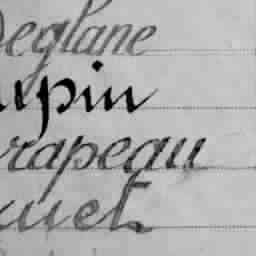 Deglane
upin
rapeau
uet